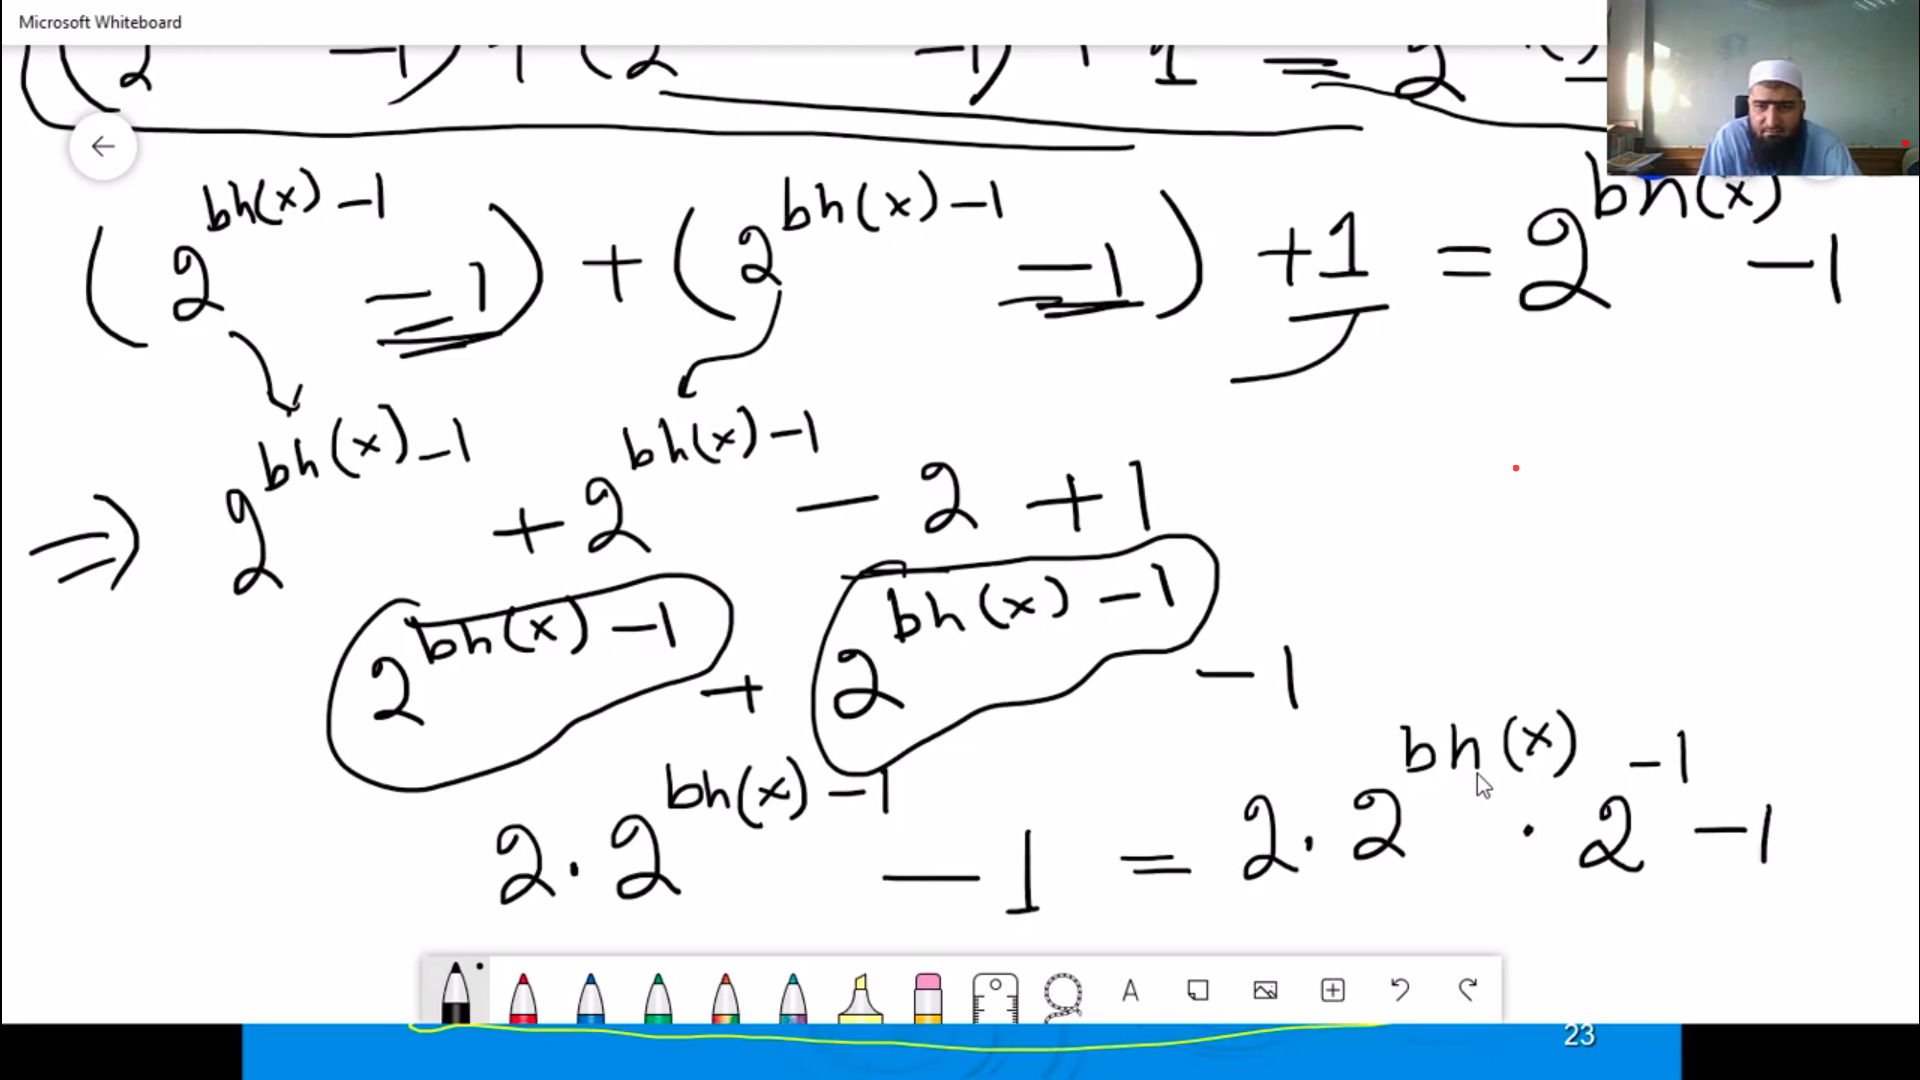 Microsoft Whiteboard
(2 -1) + (2 -1) + 1 = 2
(2^bh(x)-1 -1) + (2^bh(x)-1 -1) +1 = 2^bh(x) -1
⇒ 2^bh(x)-1 + 2^bh(x)-1 - 2 + 1
2^bh(x)-1 + 2^bh(x)-1 -1
2 · 2^bh(x)-1 - 1 = 2 · 2^bh(x) · 2^-1 -1
A
23